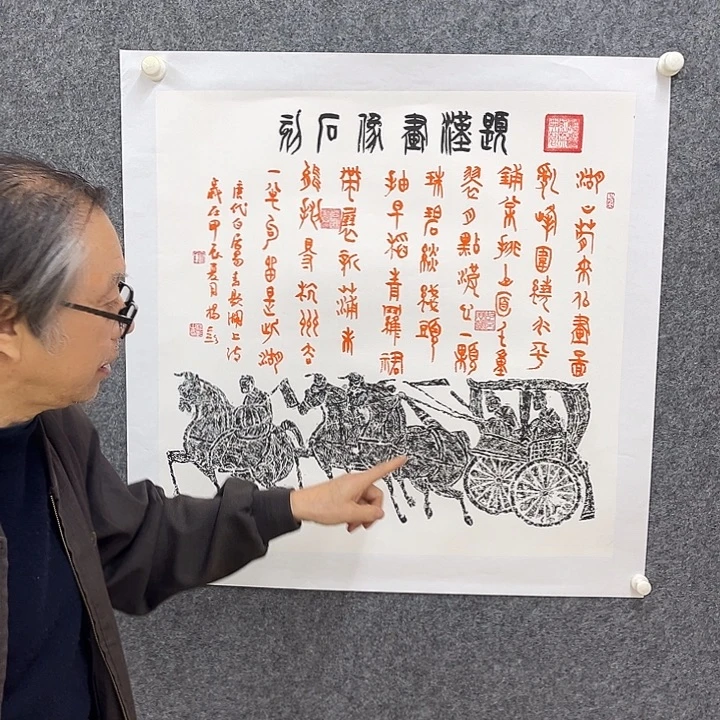 題漢畫像石刻
湖上春來似畫圖
亂峰圍繞水平
鋪松排山面千重
翠月點波心一顆
珠碧毯線頭
抽早稻青羅裙
帶展新蒲未
能拋得杭州去
一半勾留是此湖
唐代白居易春題湖上詩
歲在甲辰夏月楊